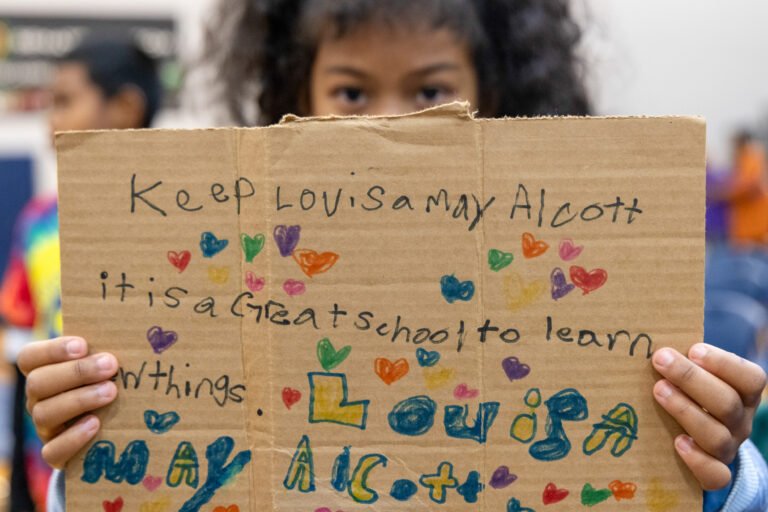 Keep Lovisa May Alcott
it is a Great school to learn
ew things.
Louisa
MAY Alcott